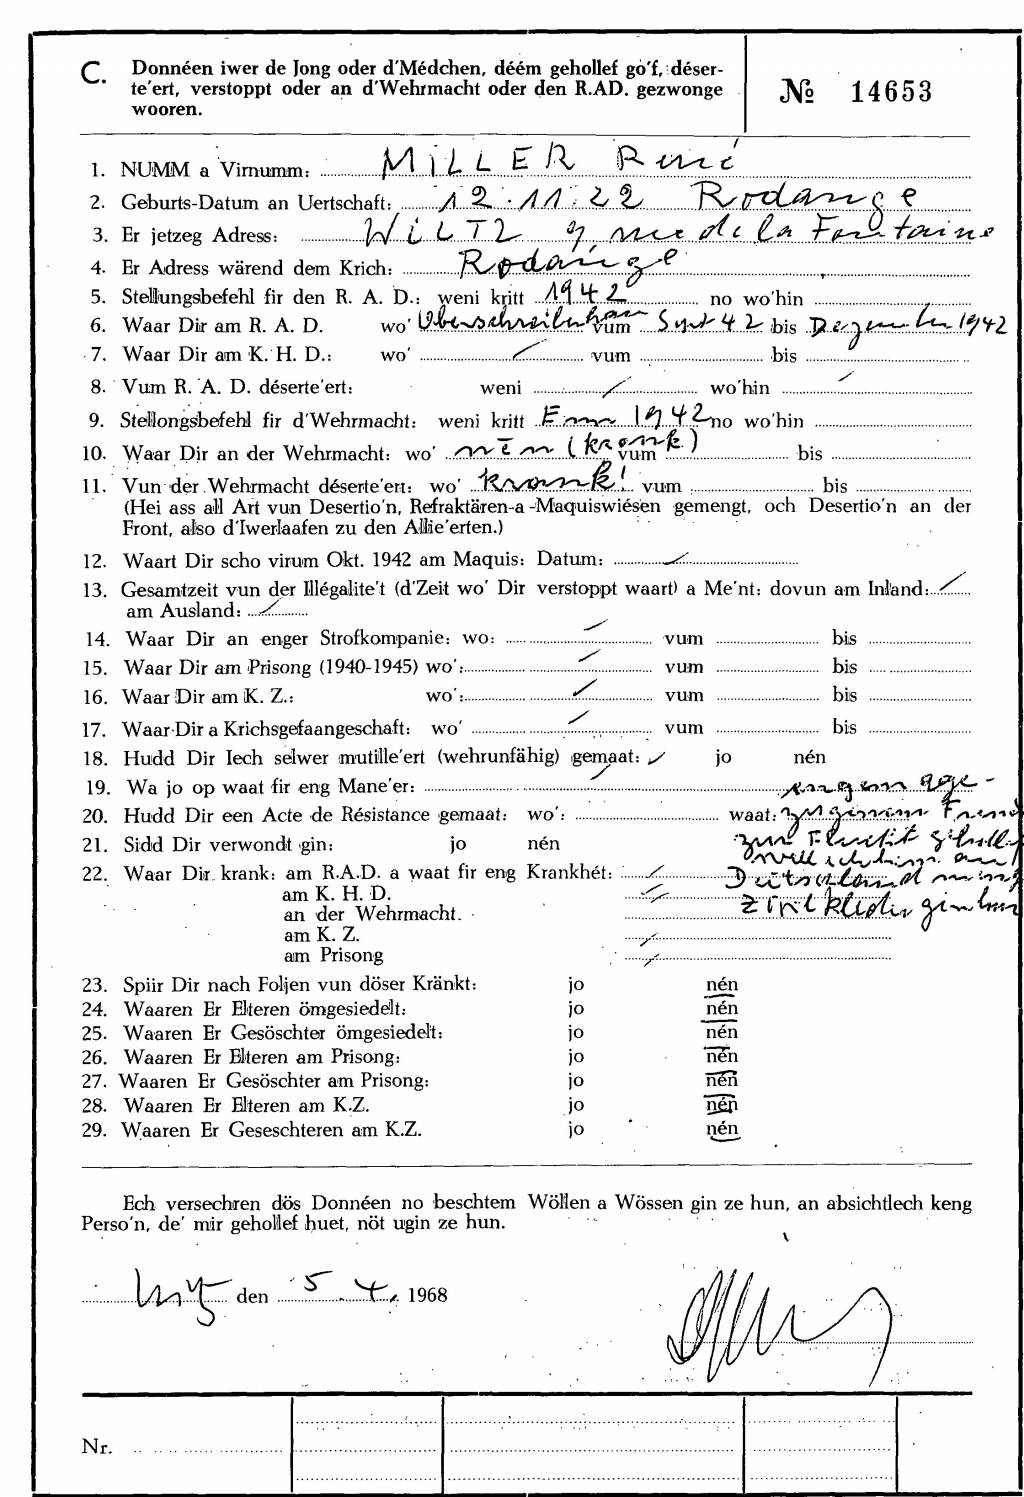 C. Donnéen iwer de Jong oder d'Médchen, déém gehollef go'f, déser-
te'ert, verstoppt oder an d'Wehrmacht oder den R.AD. gezwonge
wooren.
№ 14653
1. NUMM a Virnumm: MILLER René
2. Geburts-Datum an Uertschaft: 12.11.22 Rodange
3. Er jetzeg Adress: WILTZ 9, rue de la Fontaine
4. Er Adress wärend dem Krich: Rodange
5. Stellungsbefehl fir den R. A. D.: weni kritt 1942 no wo'hin
6. Waar Dir am R. A. D. wo' vum Sept 42 bis Dezember 1942
7. Waar Dir am K. H. D.: wo' / vum bis
8. Vum R. A. D. déserte'ert: weni / wo'hin /
9. Stellongsbefehl fir d'Wehrmacht: weni kritt Enn 1942 no wo'hin
10. Waar Dir an der Wehrmacht: wo' nēn (kronk) vum bis
11. Vun der Wehrmacht déserte'ert: wo' kronk! vum bis
(Hei ass all Art vun Desertio'n, Refraktären-a-Maquiswiésen gemengt, och Desertio'n an der
Front, also d'Iwerlaafen zu den Allie'erten.)
12. Waart Dir scho virum Okt. 1942 am Maquis: Datum: /
13. Gesamtzeit vun der Illégalite't (d'Zeit wo' Dir verstoppt waart) a Me'nt: dovun am Inland: /
am Ausland: /
14. Waar Dir an enger Strofkompanie: wo: / vum bis
15. Waar Dir am Prisong (1940-1945) wo': / vum bis
16. Waar Dir am K. Z.: wo': / vum bis
17. Waar Dir a Krichsgefaangeschaft: wo' / vum bis
18. Hudd Dir Iech selwer mutille'ert (wehrunfähig) gemaat: / jo nén
19. Wa jo op waat fir eng Mane'er: /
20. Hudd Dir een Acte de Résistance gemaat: wo': waat:
21. Sidd Dir verwondt gin: jo nén zur Flucht
22. Waar Dir krank: am R.A.D. a waat fir eng Krankhét: / Deitschland
am K. H. D. /
an der Wehrmacht. Zivilkleder
am K. Z. /
am Prisong /
23. Spiir Dir nach Foljen vun döser Kränkt: jo nén
24. Waaren Er Elteren ömgesiedelt: jo nén
25. Waaren Er Gesöschter ömgesiedelt: jo nén
26. Waaren Er Elteren am Prisong: jo nén
27. Waaren Er Gesöschter am Prisong: jo nén
28. Waaren Er Elteren am K.Z. jo nén
29. Waaren Er Geseschteren am K.Z. jo nén
Ech versechren dös Donnéen no beschtem Wöllen a Wössen gin ze hun, an absichtlech keng
Perso'n, de' mir gehollef huet, nöt ugin ze hun.
den 5. 4. 1968
Nr.